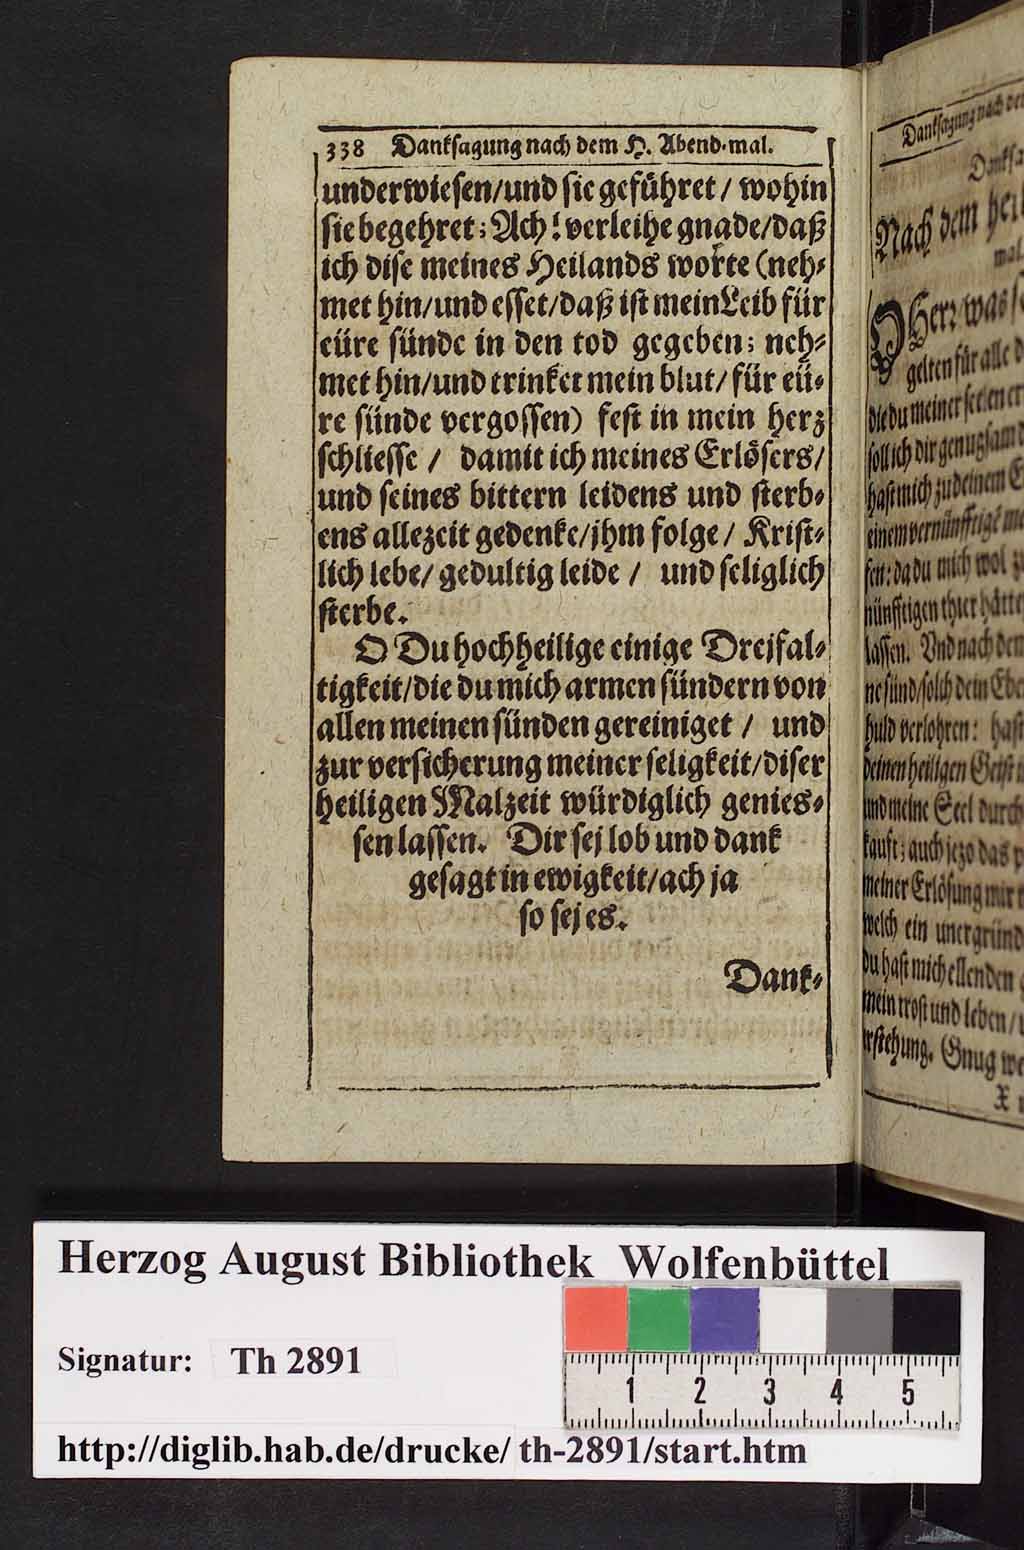 338 Danksagung nach dem H. Abend-mal.
underwiesen/und sie geführet/ wohin
sie begehret; Ach! verleihe gnade/daß
ich dise meines Heilands worte (neh-
met hin/und esset/daß ist mein Leib für
eüre sünde in den tod gegeben; neh-
met hin/und trinket mein blut/ für eü-
re sünde vergossen) fest in mein herz
schliesse / damit ich meines Erlösers/
und seines bittern leidens und sterb-
ens allezeit gedenke/jhm folge/ Krist-
lich lebe/ gedultig leide / und seliglich
sterbe.
O Du hochheilige einige Dreifal-
tigkeit/die du mich armen sündern von
allen meinen sünden gereiniget / und
zur versicherung meiner seligkeit/diser
heiligen Malzeit würdiglich genies-
sen lassen. Dir sej lob und dank
gesagt in ewigkeit/ach ja
so sej es.
Dank-
Danksagung nach
Nach dem
mal.
O Herr was
gelten für alle
die du meiner seelen
soll ich dir genugsam
hast mich zu deinem
einem vernünfftige
sen: da du mich wol
nünfftigen thier hätte
lassen. Vnd nach
ne sünd/solch dein
huld verlohren: hast
deinen heiligen Geist
und meine Seel durch
kauft; auch jezo das
meiner Erlösung mir
welch ein unergründ
du hast mich ellenden
mein trost und leben/
rstehung. Gnug
X
Herzog August Bibliothek Wolfenbüttel
Signatur: Th 2891
1 2 3 4 5
http://diglib.hab.de/drucke/ th-2891/start.htm